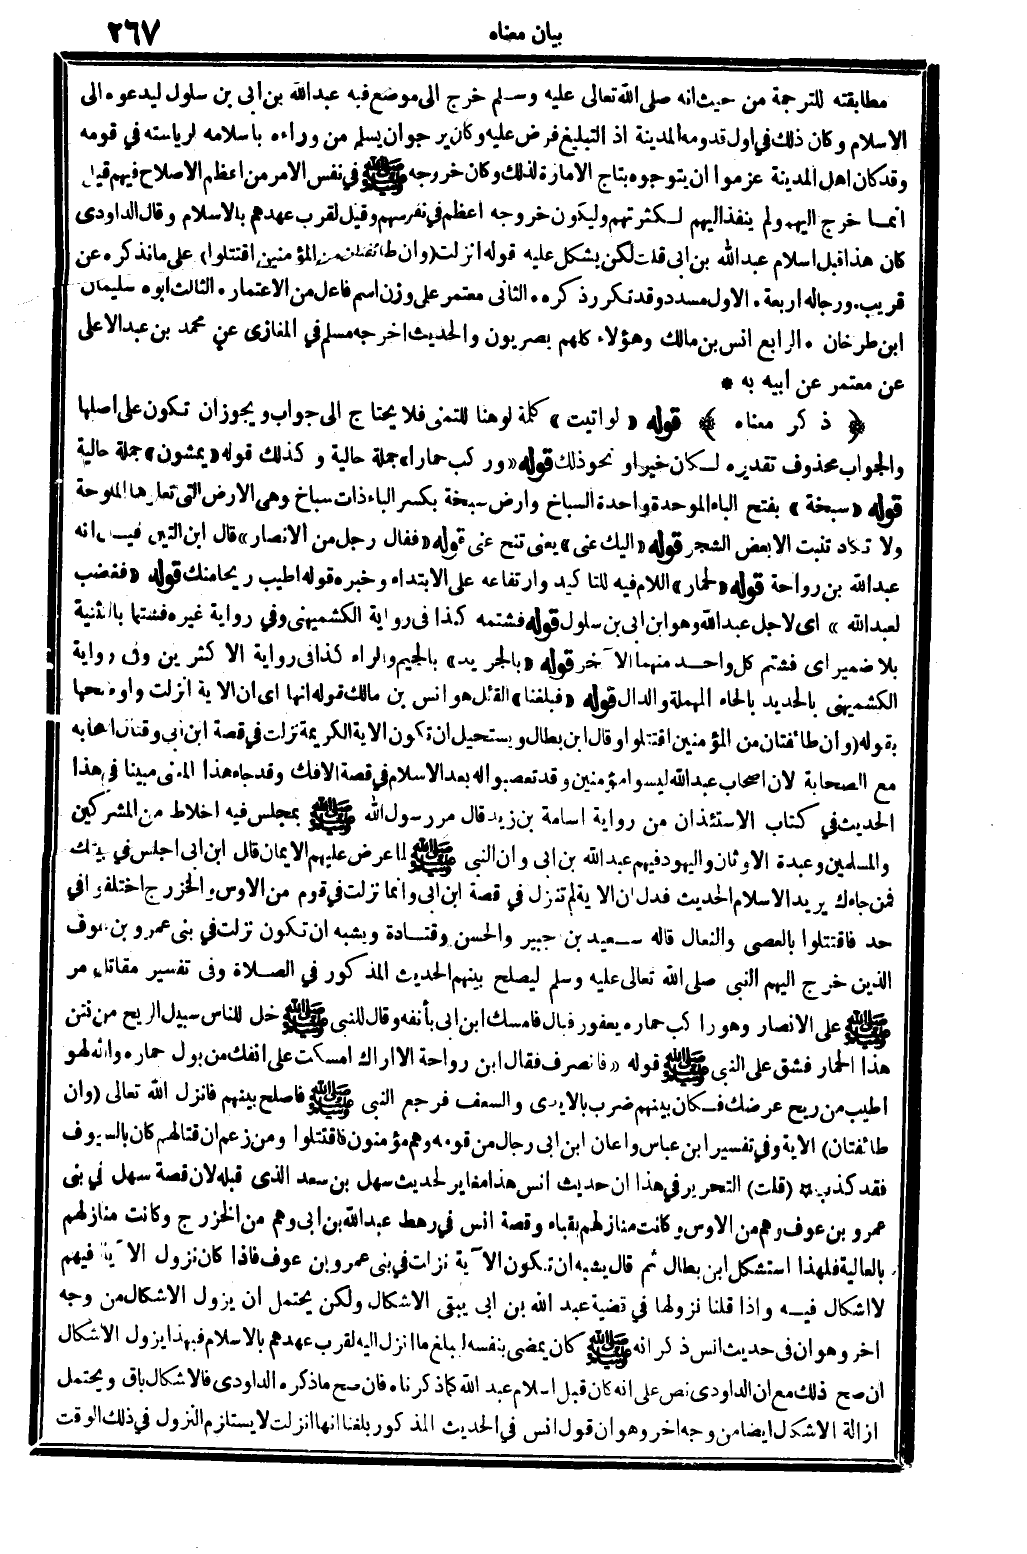 بيان معناه ٢٦٧
مطابقته للترجمة من حيث انه صلى الله تعالى عليه وسلم خرج الى موضع فيه عبدالله بن ابى بن سلول ليدعوه الى
الاسلام وكان ذلك فى اول قدومه المدينة اذ التبليغ فرض عليه وكان يرجو ان يسلم من وراءه باسلامه لرياسته في قومه
وقد كان اهل المدينة عزموا ان يتوجوه بتاج الامارة لذلك وكان خروجه ﷺ في نفس الامر من اعظم الاصلاح فيهم قيل
انما خرج اليهم ولم ينفذ اليهم لكثرتهم وليكون خروجه اعظم في نفوسهم وقيل لقرب عهدهم بالاسلام وقال الداودى
كان هذا قبل اسلام عبدالله بن ابى قلت لكن يشكل عليه قوله انزلت (وان طائفتان من المؤمنين اقتتلوا) على ما نذكره عن
قريب. ورجاله اربعة. الاول مسدد وقد تكرر ذكره. الثانى معتمر على وزن اسم فاعل من الاعتمار. الثالث ابوه سليمان
ابن طرخان . الرابع انس بن مالك وهؤلاء كلهم بصريون والحديث اخرجه مسلم في المغازى عن محمد بن عبدالاعلى
عن معتمر عن ابيه به *
﴿ ذكر معناه ﴾ قوله «لو اتيت» كلمة لو هنا للتمنى فلا يحتاج الى جواب ويجوز ان تكون على اصلها
والجواب محذوف تقديره لكان خيرا او نحو ذلك قوله «وركب حمارا» جملة حالية وكذلك قوله «يمشون» جملة حالية
قوله «سبخة» بفتح الباء الموحدة واحدة السباخ وارض سبخة بكسر الباء ذات سباخ وهى الارض التى تعلوها الملوحة
ولا تكاد تنبت الا بعض الشجر قوله «اليك عنى» يعنى تنح عنى قوله «فقال رجل من الانصار» قال ابن التين قيل انه
عبدالله بن رواحة قوله «لحمار» اللام فيه للتاكيد وارتفاعه على الابتداء وخبره قوله اطيب ريحا منك قوله «فغضب
لعبدالله» اى لاجل عبدالله وهو ابن ابى بن سلول قوله فشتمه كذا فى رواية الكشميهنى وفي رواية غيره فشتما بالتثنية
بلا ضمير اى فشتم كل واحد منهما الآخر قوله «بالجريد» بالجيم والراء كذا فى رواية الاكثرين وفى رواية
الكشميهنى بالحديد بالحاء المهملة والدال قوله «فبلغنا» القائل هو انس بن مالك قوله انها اى ان الاية انزلت واوضحها
بقوله (وان طائفتان من المؤمنين اقتتلوا) وقال ابن بطال ويستحيل ان تكون الاية الكريمة نزلت في قصة ابن ابى وقتال اصحابه
مع الصحابة لان اصحاب عبدالله ليسوا مؤمنين وقد تعصبوا له بعد الاسلام في قصة الافك وقد جاء هذا المعنى مبينا في هذا
الحديث في كتاب الاستئذان من رواية اسامة بن زيد قال مر رسول الله ﷺ بمجلس فيه اخلاط من المشركين
والمسلمين وعبدة الاوثان واليهود فيهم عبدالله بن ابى وان النبى ﷺ لما عرض عليهم الايمان قال ابن ابى اجلس في بيتك
فمن جاءك يريد الاسلام الحديث فدل ان الاية لم تنزل في قصة ابن ابى وانما نزلت في قوم من الاوس والخزرج اختلفوا في
حد فاقتتلوا بالعصى والنعال قاله سعيد بن جبير والحسن وقتادة ويشبه ان تكون نزلت في بنى عمرو بن عوف
الذين خرج اليهم النبى صلى الله تعالى عليه وسلم ليصلح بينهم الحديث المذكور في الصلاة وفى تفسير مقاتل مر
ﷺ على الانصار وهو راكب حماره يعفور فبال فامسك ابن ابى بأنفه وقال للنبى ﷺ خل للناس سبيل الريح من نتن
هذا الحمار فشق على النبى ﷺ قوله «فانصرف فقال ابن رواحة الا اراك امسكت على انفك من بول حماره والله لهو
اطيب من ريح عرضك فكان بينهم ضرب بالايدى والسعف فرجع النبى ﷺ فاصلح بينهم فانزل الله تعالى (وان
طائفتان) الاية وفي تفسير ابن عباس واعان ابن ابى رجال من قومه وهم مؤمنون فاقتتلوا ومن زعم ان قتالهم كان بالسيوف
فقد كذب * (قلت) التحرير في هذا ان حديث انس هذا مغاير لحديث سهل بن سعد الذى قبله لان قصة سهل في بنى
عمرو بن عوف وهم من الاوس وكانت منازلهم بقباء وقصة انس في رهط عبدالله بن ابى وهم من الخزرج وكانت منازلهم
بالعالية فلهذا استشكل ابن بطال ثم قال يشبه ان تكون الآية نزلت في بنى عمرو بن عوف فاذا كان نزول الآية فيهم
لا اشكال فيه واذا قلنا نزولها في قضية عبدالله بن ابى يبقى الاشكال ولكن يحتمل ان يزول الاشكال من وجه
اخر وهو ان فى حديث انس ذكر انه ﷺ كان يمضى بنفسه ليبلغ ما انزل اليه لقرب عهدهم بالاسلام فبهذا يزول الاشكال
ان صح ذلك مع ان الداودى نص على انه كان قبل اسلام عبدالله كما ذكرناه فان صح ما ذكره الداودى فالاشكال باق ويحتمل
ازالة الاشكال ايضا من وجه اخر وهو ان قول انس في الحديث المذكور بلغنا انها انزلت لا يستلزم النزول في ذلك الوقت